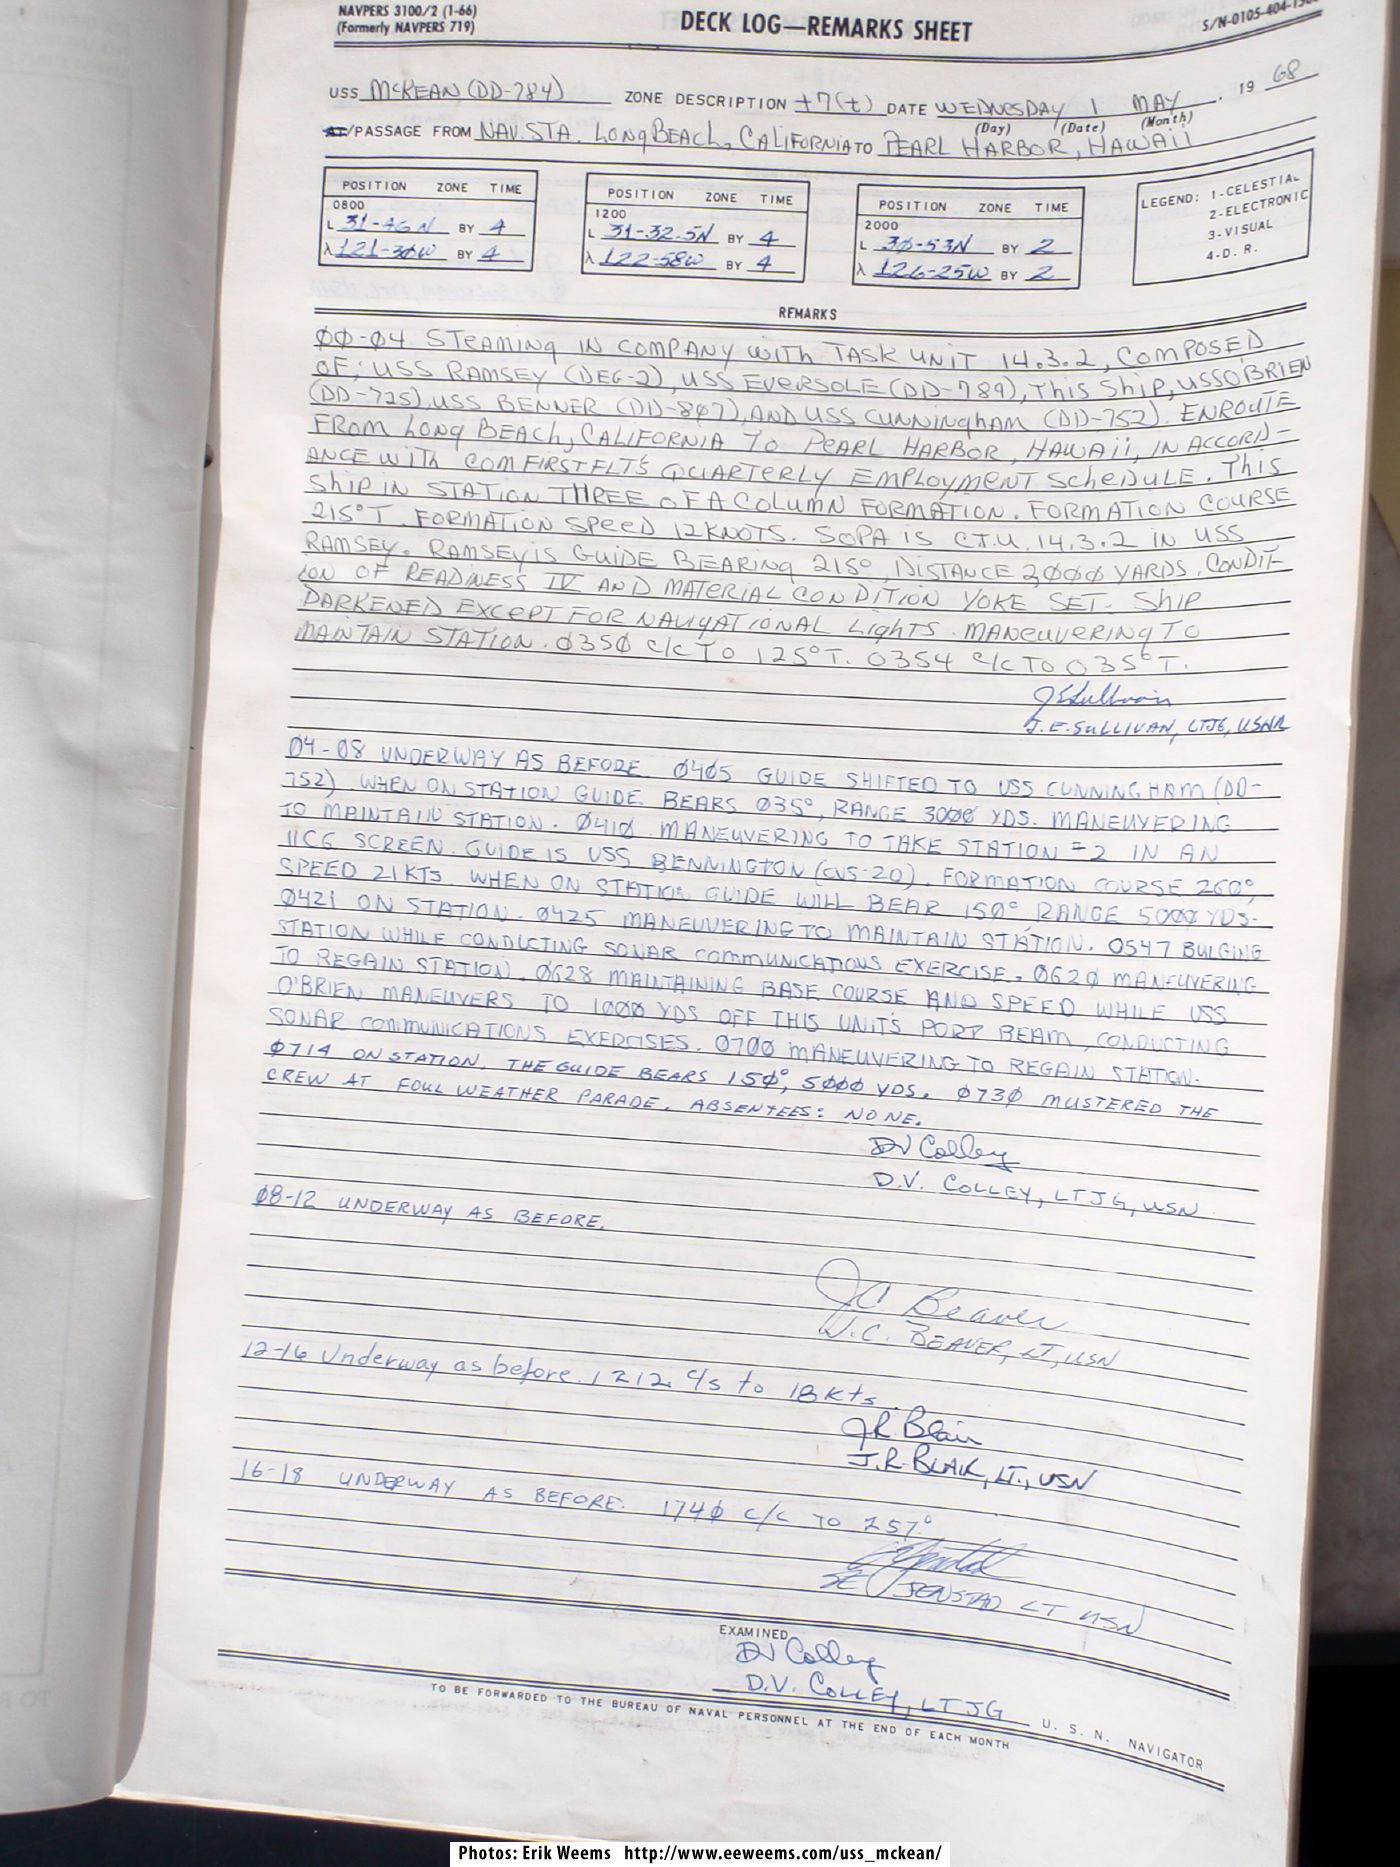 NAVPERS 3100/2 (1-66)
(Formerly NAVPERS 719)
DECK LOG—REMARKS SHEET
S/N-0105-404-
USS McKEAN (DD-784) ZONE DESCRIPTION +7(t) DATE WEDNESDAY 1 MAY . 19 68
(Day) (Date) (Month)
AT/PASSAGE FROM NAV. STA. LONG BEACH, CALIFORNIA TO PEARL HARBOR, HAWAII
POSITION ZONE TIME
0800
L 31-46N BY 4
λ 121-30W BY 4
POSITION ZONE TIME
1200
L 31-32.5N BY 4
λ 122-58W BY 4
POSITION ZONE TIME
2000
L 30-53N BY 2
λ 126-25W BY 2
LEGEND: 1-CELESTIAL
2-ELECTRONIC
3-VISUAL
4-D. R.
REMARKS
00-04 STEAMING IN COMPANY WITH TASK UNIT 14.3.2, COMPOSED
OF; USS RAMSEY (DEG-2), USS EVERSOLE (DD-789), THIS SHIP, USS O'BRIEN
(DD-725), USS BENNER (DD-807), AND USS CUNNINGHAM (DD-752). ENROUTE
FROM LONG BEACH, CALIFORNIA TO PEARL HARBOR, HAWAII, IN ACCORD-
ANCE WITH COMFIRSTFLT'S QUARTERLY EMPLOYMENT SCHEDULE. THIS
SHIP IN STATION THREE OF A COLUMN FORMATION. FORMATION COURSE
215°T. FORMATION SPEED 12 KNOTS. SOPA IS C.T.U. 14.3.2 IN USS
RAMSEY. RAMSEY IS GUIDE BEARING 215°, DISTANCE 2000 YARDS. CONDIT-
ION OF READINESS IV AND MATERIAL CONDITION YOKE SET. SHIP
DARKENED EXCEPT FOR NAVIGATIONAL LIGHTS. MANEUVERING TO
MAINTAIN STATION. 0350 C/C TO 125°T. 0354 C/C TO 035°T.
JESullivan
J.E. SULLIVAN, LTJG, USNR
04-08 UNDERWAY AS BEFORE. 0405 GUIDE SHIFTED TO USS CUNNINGHAM (DD-
752). WHEN ON STATION GUIDE BEARS 035°, RANGE 3000 YDS. MANEUVERING
TO MAINTAIN STATION. 0410 MANEUVERING TO TAKE STATION #2 IN AN
11C6 SCREEN. GUIDE IS USS BENNINGTON (CVS-20). FORMATION COURSE 260°,
SPEED 21KTS. WHEN ON STATION GUIDE WILL BEAR 150° RANGE 5000 YDS.
0421 ON STATION. 0425 MANEUVERING TO MAINTAIN STATION. 0547 BULGING
STATION WHILE CONDUCTING SONAR COMMUNICATIONS EXERCISE. 0620 MANEUVERING
TO REGAIN STATION. 0628 MAINTAINING BASE COURSE AND SPEED WHILE USS
O'BRIEN MANEUVERS TO 1000 YDS OFF THIS UNIT'S PORT BEAM, CONDUCTING
SONAR COMMUNICATIONS EXERCISES. 0700 MANEUVERING TO REGAIN STATION.
0714 ON STATION. THE GUIDE BEARS 150°, 5000 YDS. 0730 MUSTERED THE
CREW AT FOUL WEATHER PARADE. ABSENTEES: NONE.
DV Colley
D.V. COLLEY, LTJG, USN
08-12 UNDERWAY AS BEFORE.
JC Beaver
J.C. BEAVER, LT, USN
12-16 Underway as before. 1212 c/s to 18 kts.
JR Blair
J.R. BLAIR, LT., USN
16-18 UNDERWAY AS BEFORE. 1740 C/C TO 257°
JENSTAD LT USN
EXAMINED
DV Colley
D.V. COLLEY, LTJG U. S. N. NAVIGATOR
TO BE FORWARDED TO THE BUREAU OF NAVAL PERSONNEL AT THE END OF EACH MONTH
Photos: Erik Weems http://www.eeweems.com/uss_mckean/